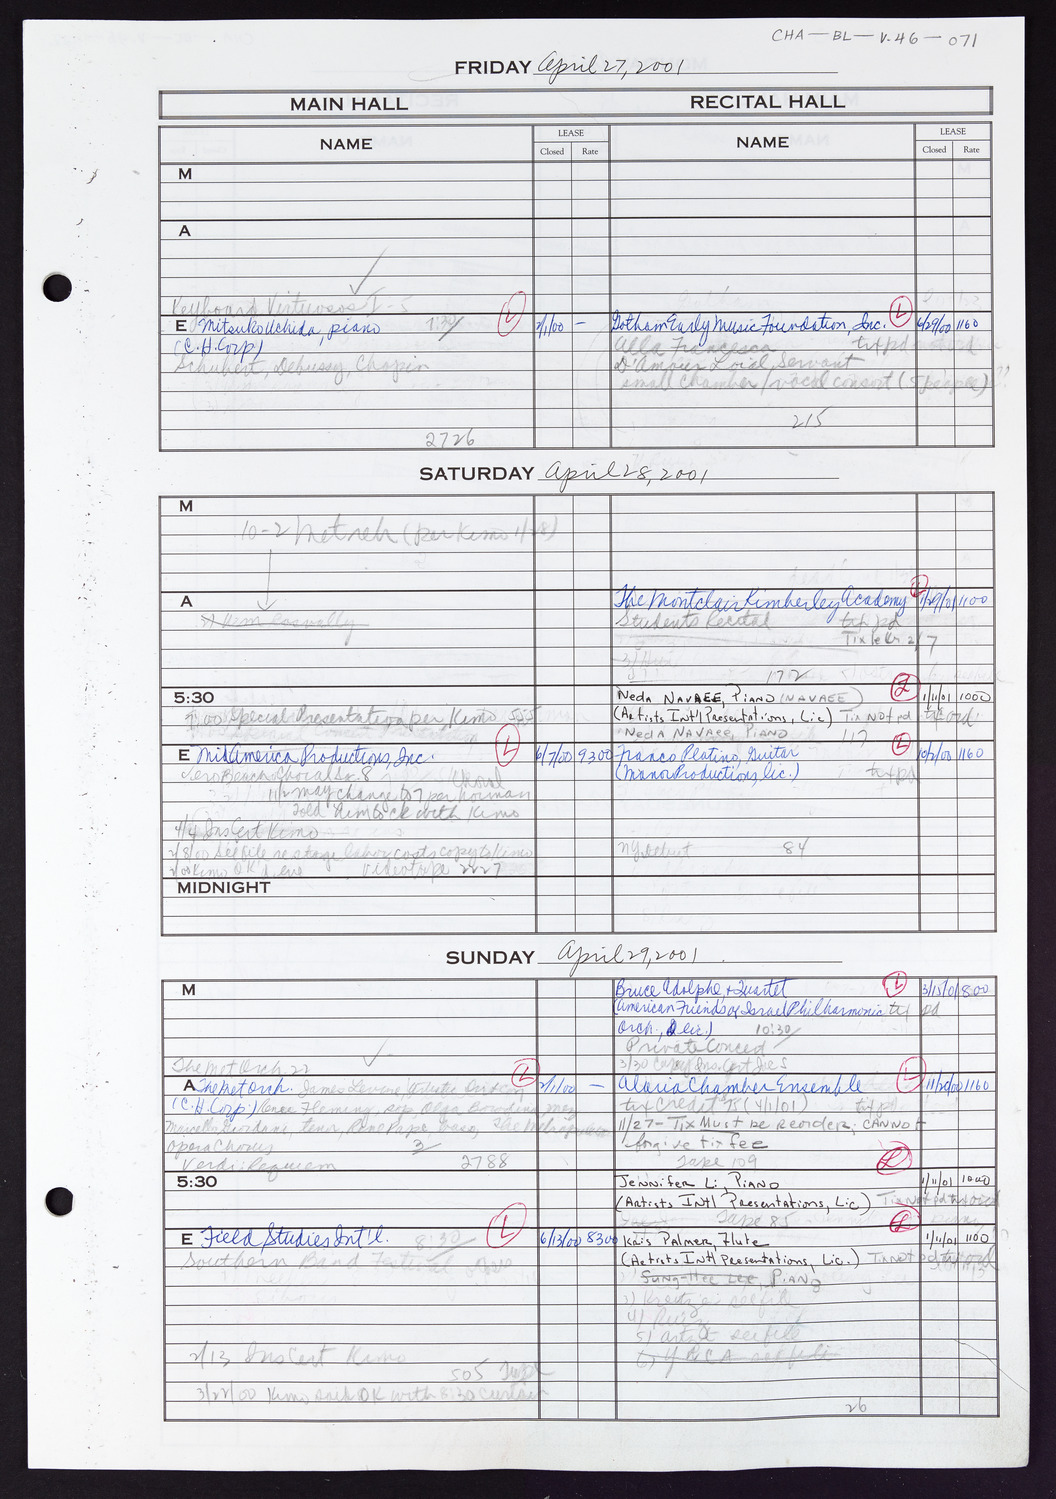 CHA-BL-V.46-071
FRIDAY April 27, 2001
MAIN HALL
RECITAL HALL
NAME
LEASE
Closed Rate
NAME
LEASE
Closed Rate
M
A
Keyboard Virtuosos I-5
E Mitsuko Uchida, piano 7:30 L 2/1/00 —
(C.H. Corp)
Schubert, Debussy, Chopin
2726
Gotham Early Music Foundation, Inc. L 6/29/00 1160
Alla Francesca
D'Amour Loial Servant
small chamber/vocal consort (5 people)??
215
SATURDAY April 28, 2001
M
10-2 Met reh (per Kimo 1/28)
A
The Montclair Kimberley Academy L 1/29/01 1100
Students Recital tix pd
Tix 2/7
172
5:30
Special Presentation per Kimo 505
Neda Navaee, Piano (NAVAEE) L 1/11/01 1000
(Artists Int'l Presentations, Lic) Tix Not pd
Neda Navaee, Piano 117
E MidAmerica Productions, Inc. L 6/7/00 9300
Vero Beach Choral Soc. 8 Choral
11/2 may change to 7 per Norman
told him to ck with Kimo
4/4 Ins Cert Kimo
2/8/00 See file re stage labor costs copy to Kimo
Kimo OK'd eve videotape 2227
Franco Platino, Guitar L 10/2/00 1160
(Manor Productions, lic.) tix pd
NY Debut 84
MIDNIGHT
SUNDAY April 29, 2001
M
Bruce Adolphe + Quartet L 3/15/01 800
(American Friends of Israel Philharmonic tix pd
Orch, Lic.) 10:30
Private Concert
3/30 copy Ins. Cert Joe S
The Met Orch. 22
A The Met Orch. James Levine, L 2/1/00 —
(C.H. Corp.) Renee Fleming, sop, Olga Borodina, mez
Marcello Giordani, tenor, Rene Pape, bass, The Metropolitan
Opera Chorus 3
Verdi: Requiem 2788
Alaria Chamber Ensemble L 11/20/00 1160
tix credit 75 (4/1/01) tix pd
11/27 - Tix Must be Reorder; CANNOT
forgive tix fee
Tape 109
5:30
Jennifer Li, Piano L 1/11/01 1000
(Artists Int'l Presentations, Lic) Tix Not pd
Tape 85
E Field Studies Int'l. 8:30 L 6/13/00 8300
Southern Band Festival
2/13 Ins Cert Kimo
505
3/22/00 Kimo said OK with 8:30 curtain
Kris Palmer, Flute L 1/11/01 1100
(Artists Int'l Presentations, Lic.) Tix Not pd
Sung-Hee Lee, Piano
5) artist see file
26